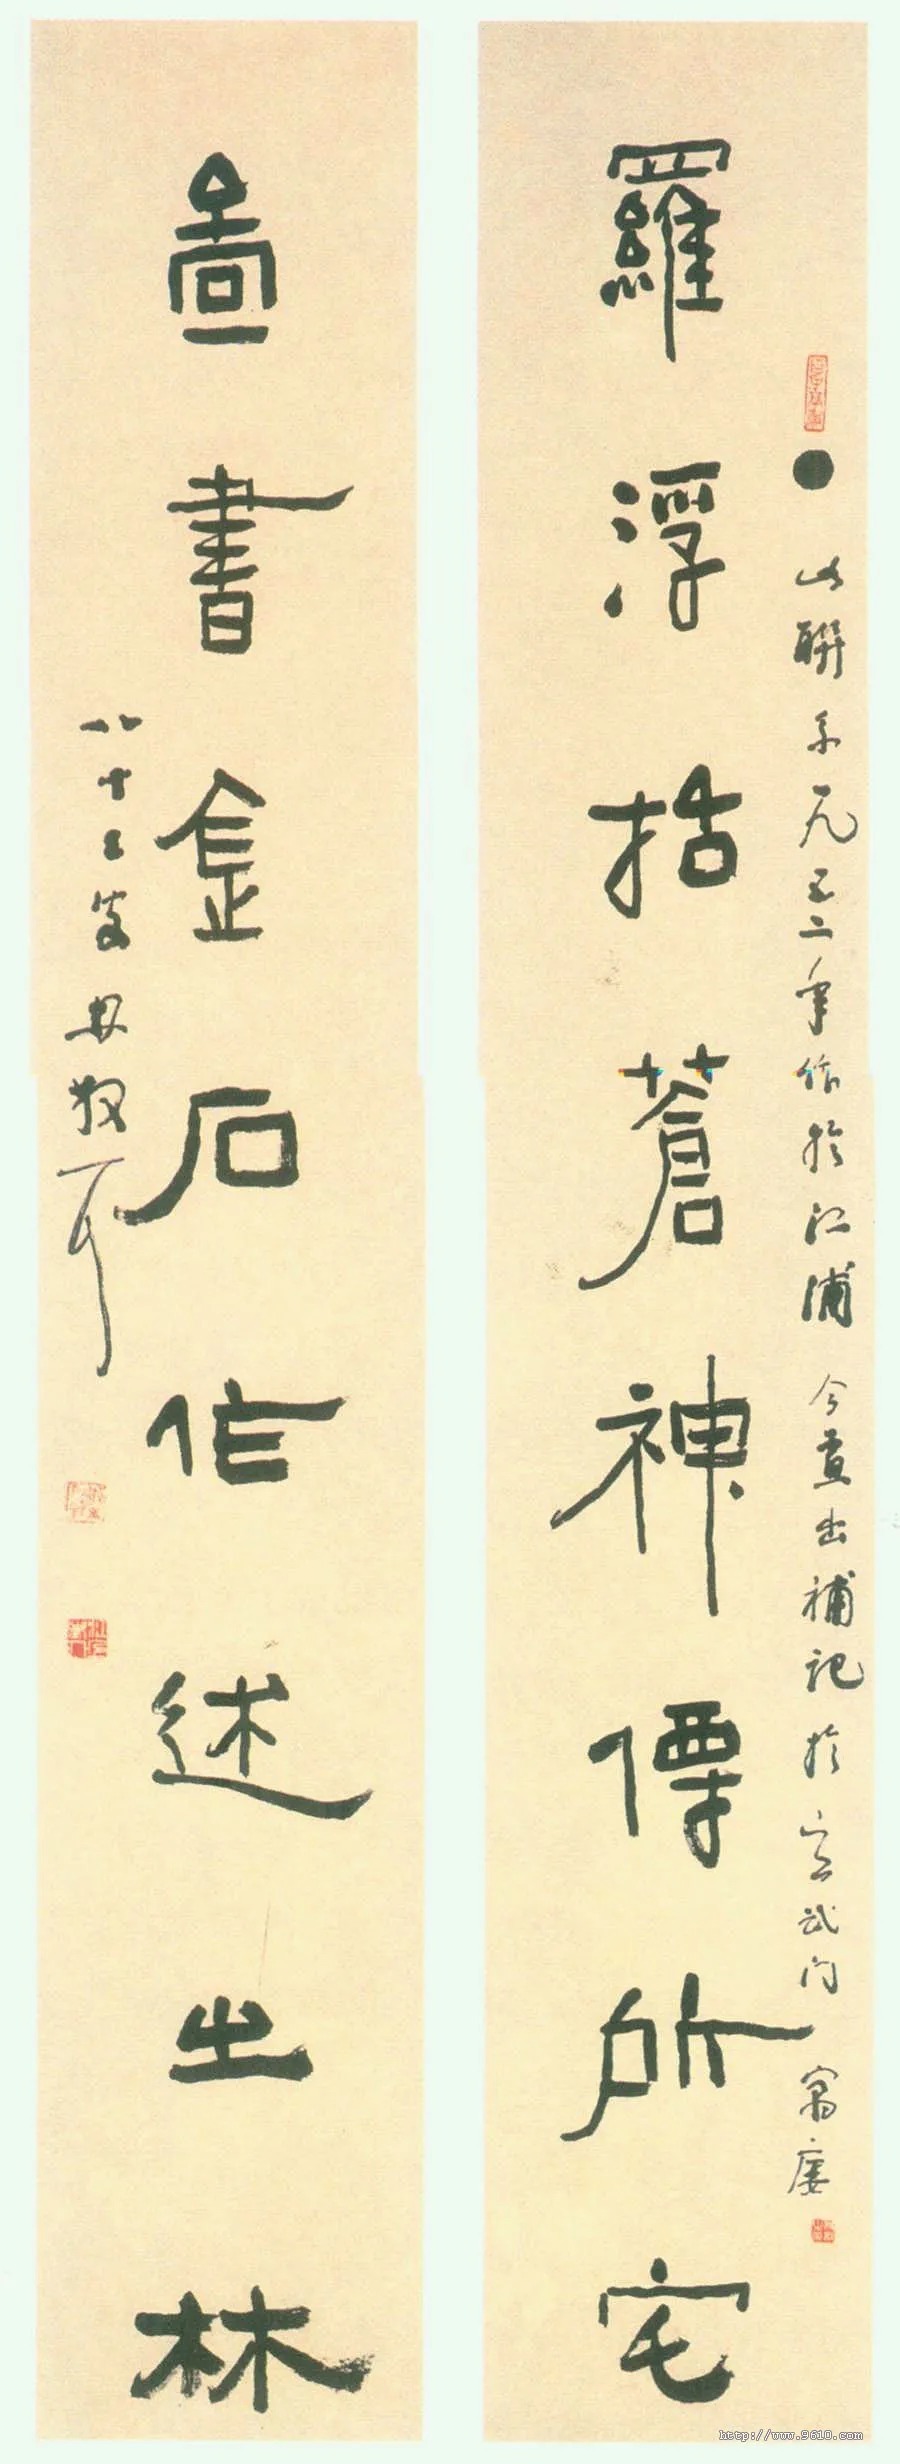 羅浮括蒼神僊所宅
此联系一九五二年作於江浦 今查出補記於玄武门 寓廔
圖書金石作述之林
八十二叟 林散耳
http://www.9610.com